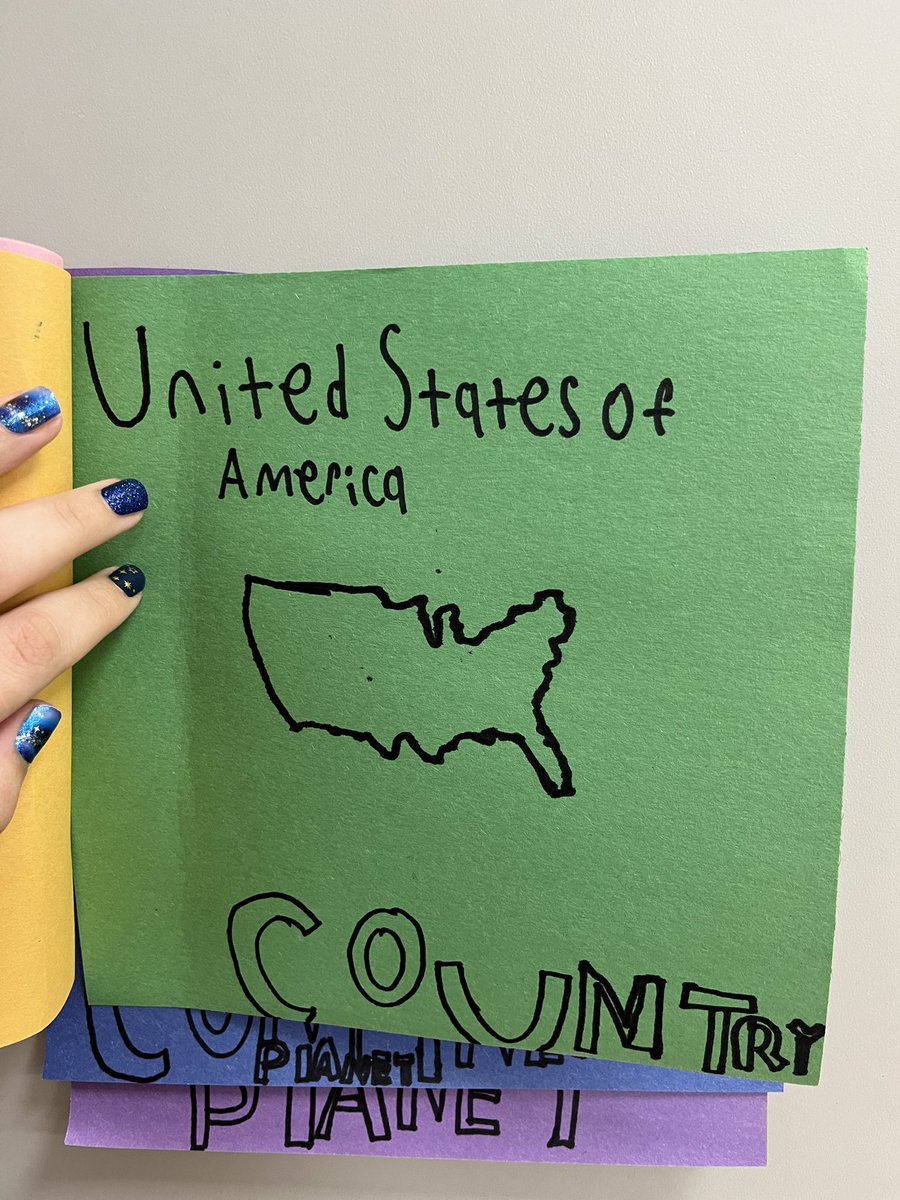 United States of
America
COUNTRY
PlANET
PlANET